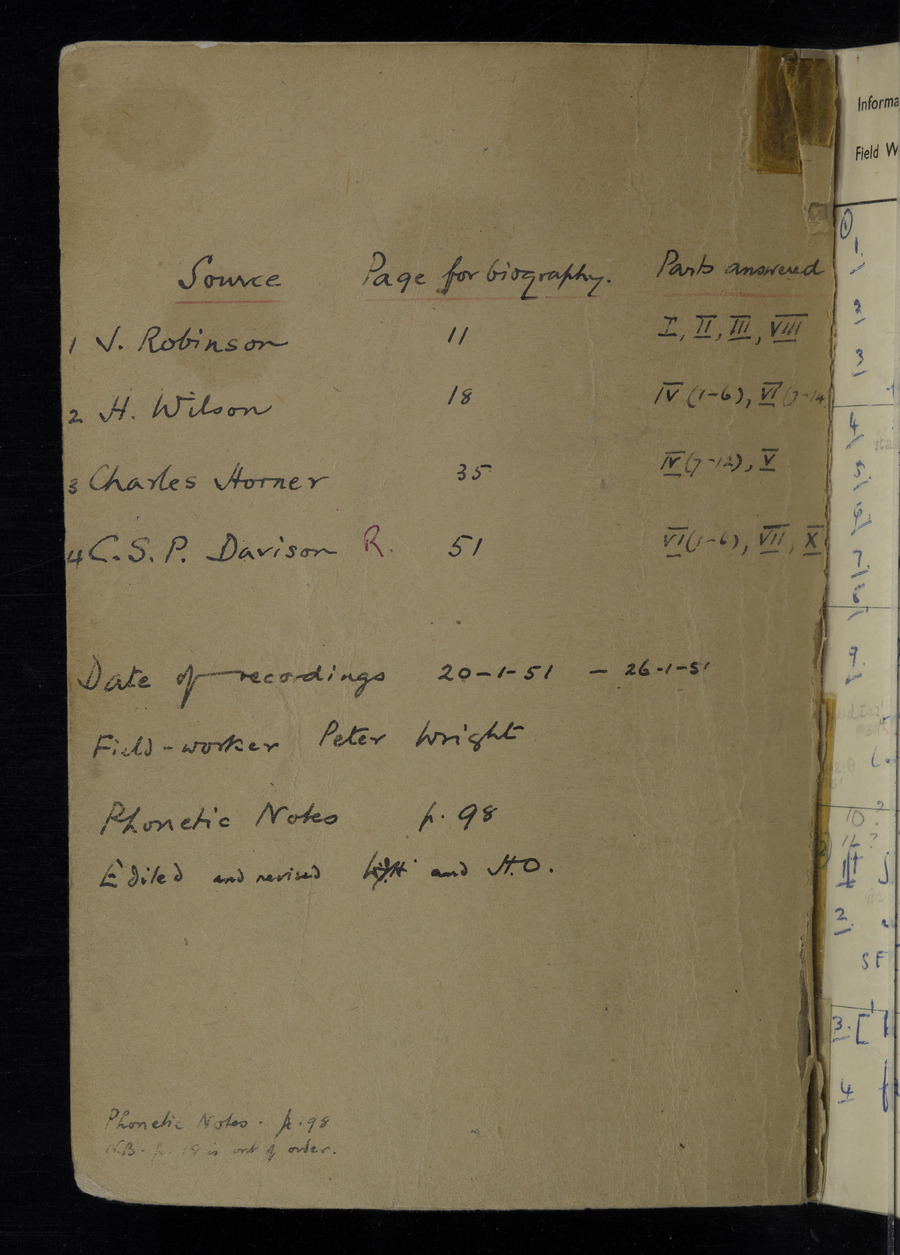 Source Page for biography. Parts answered
1 J. Robinson 11 I, II, III, VIII
2 H. Wilson 18 IV (1-6), VI (7-14
3 Charles Horner 35 IV (7-12), V
4 C. S. P. Davison R. 51 VI (1-6), VII, X
Date of recordings 20-1-51 - 26-1-51
Field-worker Peter Wright
Phonetic Notes p. 98
Edited and revised and H.O.
Phonetic Notes. p. 98
N.B. p. 18 is out of order.
Informa
Field W
1
1.
2
3
4
5.
6
7.
8
9.
10?
11?
2.
SF
3. [
4